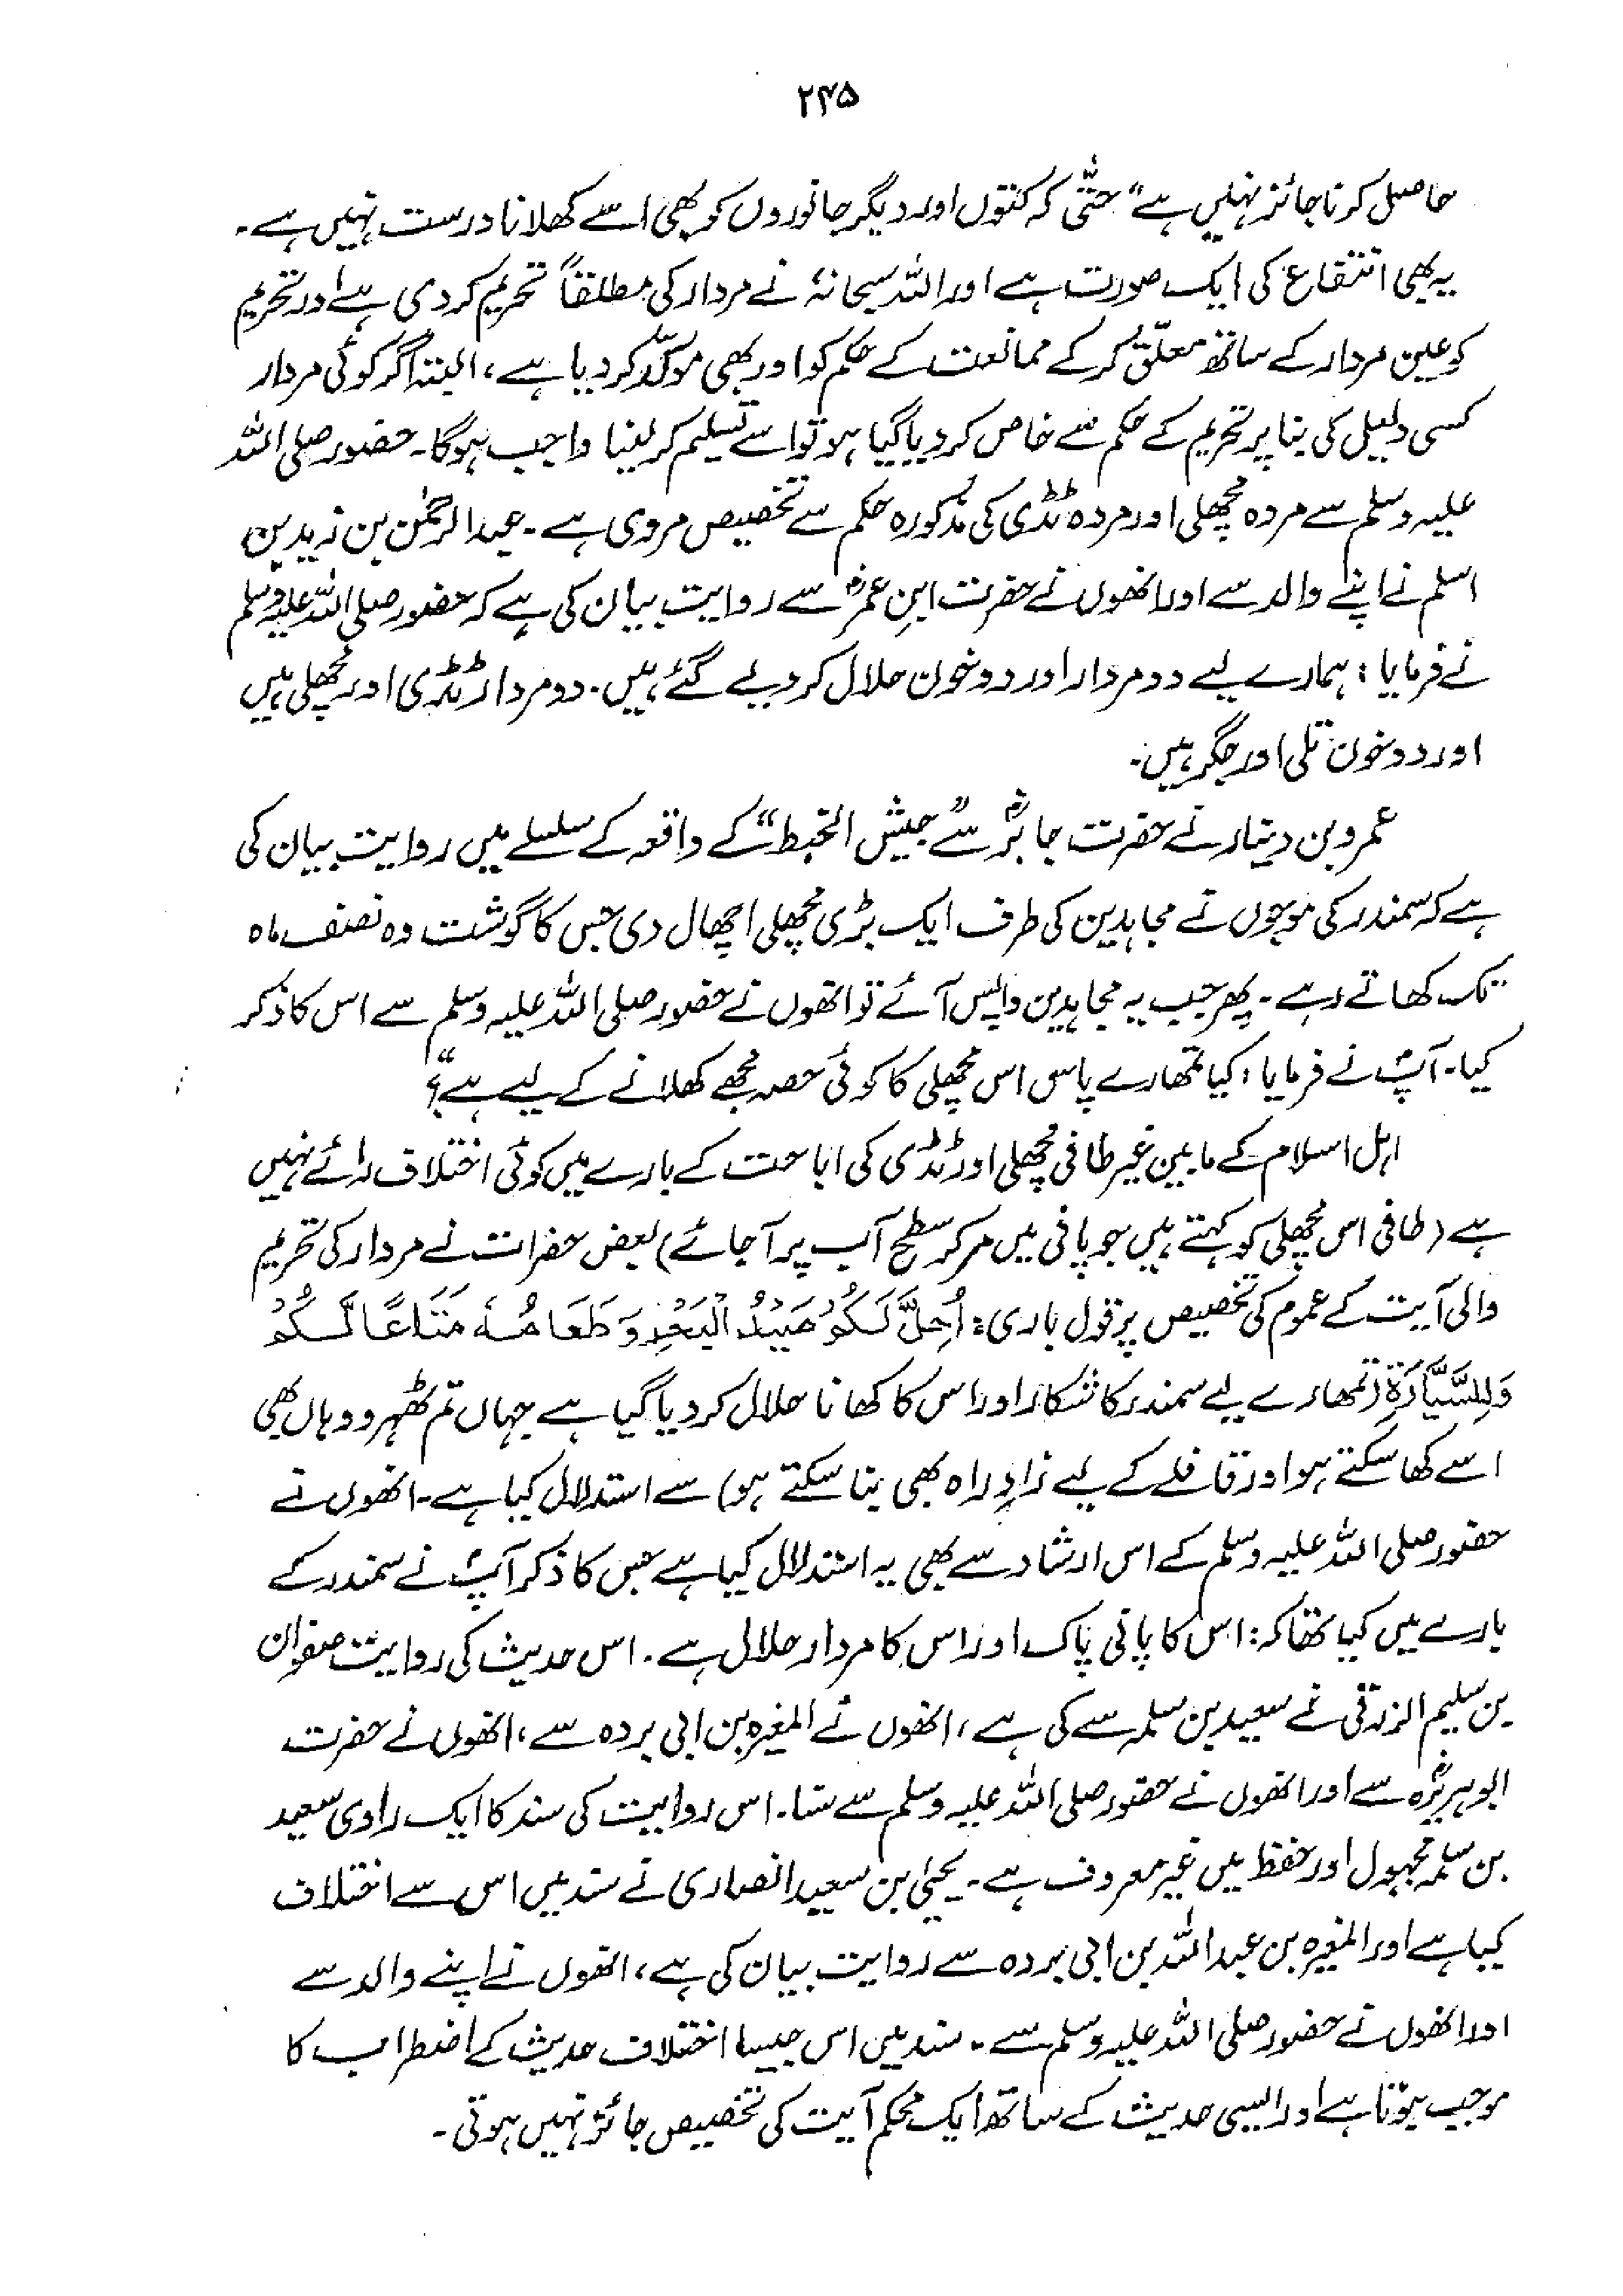 ۲۴۵
حاصل کرنا جائز نہیں ہے" حتّٰی کہ کتوں اور دیگر جانوروں کو بھی اسے کھلانا درست نہیں ہے۔
یہ بھی انتفاع کی ایک صورت ہے اور اللہ سبحانہٗ نے مردار کی مطلقاً تحریم کردی ہے اور تحریم
کو عین مردار کے ساتھ معلّق کرکے ممانعت کے حکم کو اور بھی موکّد کردیا ہے، البتہ اگر کوئی مردار
کسی دلیل کی بنا پر تحریم کے حکم سے خاص کردیا گیا ہو تو اسے تسلیم کرلینا واجب ہوگا۔ حضور صلی اللہ
علیہ وسلم سے مردہ مچھلی اور مردہ ٹڈی کی مذکورہ حکم سے تخصیص مروی ہے۔ عبدالرحمٰن بن زید بن
اسلم نے اپنے والد سے اور انھوں نے حضرت ابنِ عمرؓ سے روایت بیان کی ہے کہ حضور صلی اللہ علیہ وسلم
نے فرمایا: ہمارے لیے دو مردار اور دو خون حلال کردیے گئے ہیں۔ دو مردار ٹڈی اور مچھلی ہیں
اور دو خون تلی اور جگر ہیں۔
عمرو بن دینار نے حضرت جابرؓ سے "جیش الخبط" کے واقعہ کے سلسلے میں روایت بیان کی
ہے کہ سمندر کی موجوں نے مجاہدین کی طرف ایک بڑی مچھلی اچھال دی جس کا گوشت وہ نصف ماہ
تک کھاتے رہے۔ پھر جب یہ مجاہدین واپس آئے تو انھوں نے حضور صلی اللہ علیہ وسلم سے اس کا ذکر
کیا۔ آپؐ نے فرمایا: کیا تمھارے پاس اس مچھلی کا کوئی حصہ مجھے کھلانے کے لیے ہے؟"
اہل اسلام کے مابین غیر طافی مچھلی اور ٹڈی کی اباحت کے بارے میں کوئی اختلاف رائے نہیں
ہے (طافی اس مچھلی کو کہتے ہیں جو پانی میں مرکر سطح آب پر آجائے) بعض حضرات نے مردار کی تحریم
والی آیت کے عموم کی تخصیص پر قول باری: اُحِلَّ لَكُمْ صَيْدُ الْبَحْرِ وَ طَعَامُهٗ مَتَاعًا لَّكُمْ
وَلِلسَّيَّارَةِ (تمھارے لیے سمندر کا شکار اور اس کا کھانا حلال کردیا گیا ہے جہاں تم ٹھہرو وہاں بھی
اسے کھا سکتے ہو اور قافلے کے لیے زادِ راہ بھی بنا سکتے ہو) سے استدلال کیا ہے۔ انھوں نے
حضور صلی اللہ علیہ وسلم کے اس ارشاد سے بھی یہ استدلال کیا ہے جس کا ذکر آپؐ نے سمندر کے
بارے میں کیا تھا کہ: اس کا پانی پاک اور اس کا مردار حلال ہے۔ اس حدیث کی روایت صفوان
بن سلیم الزرقی نے سعید بن سلمہ سے کی ہے، انھوں نے المغیرہ بن ابی بردہ سے، انھوں نے حضرت
ابوہریرہؓ سے اور انھوں نے حضور صلی اللہ علیہ وسلم سے سنا۔ اس روایت کی سند کا ایک راوی سعید
بن سلمہ مجہول اور حفظ میں غیر معروف ہے۔ یحیٰی بن سعید انصاری نے سند میں اس سے اختلاف
کیا ہے اور المغیرہ بن عبداللہ بن ابی بردہ سے روایت بیان کی ہے، انھوں نے اپنے والد سے
اور انھوں نے حضور صلی اللہ علیہ وسلم سے۔ سند میں اس جیسا اختلاف حدیث کے اضطراب کا
موجب ہوتا ہے اور ایسی حدیث کے ساتھ ایک محکم آیت کی تخصیص جائز نہیں ہوتی۔